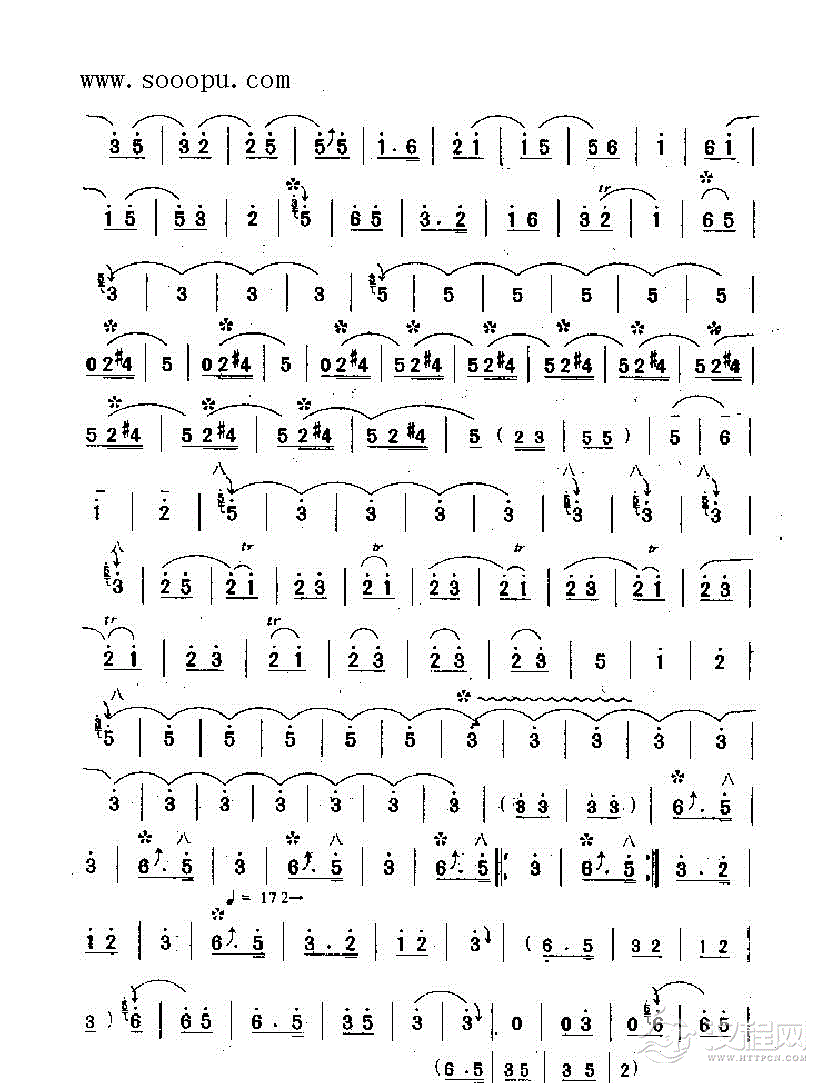 www.sooopu.com
3 5 | 3 2 | 2 5 | 5 5 | 1 . 6 | 2 1 | 1 5 | 5 6 | 1 | 6 1
1 5 | 5 3 | 2 | 5 | 6 5 | 3 . 2 | 1 6 | tr 3 2 | 1 | 6 5
3 | 3 | 3 | 3 | 5 | 5 | 5 | 5 | 5 | 5
0 2 #4 | 5 | 0 2 #4 | 5 | 0 2 #4 | 5 2 #4 | 5 2 #4 | 5 2 #4 | 5 2 #4 | 5 2 #4
5 2 #4 | 5 2 #4 | 5 2 #4 | 5 2 #4 | 5 ( 2 3 | 5 5 ) | 5 | 6
1 | 2 | 5 | 3 | 3 | 3 | 3 | 3 | 3 | 3
3 | 2 5 | tr 2 1 | 2 3 | tr 2 1 | 2 3 | tr 2 1 | 2 3 | tr 2 1 | 2 3
tr 2 1 | 2 3 | tr 2 1 | 2 3 | 2 3 | 2 3 | 5 | 1 | 2
5 | 5 | 5 | 5 | 5 | 5 | 3 | 3 | 3 | 3 | 3
3 | 3 | 3 | 3 | 3 | 3 | ( 3 3 | 3 3 ) | 6 . 5
3 | 6 . 5 | 3 | 6 . 5 | 3 | 6 . 5 |: 3 | 6 . 5 :| 3 . 2
♩= 172→
1 2 | 3 | 6 . 5 | 3 . 2 | 1 2 | 3 | ( 6 . 5 | 3 2 | 1 2
3 ) 6 | 6 5 | 6 . 5 | 3 5 | 3 | 3 | 0 | 0 3 | 0 6
(6 . 5 | 3 5 | 3 5 | 2)
汉程网
WWW.HTTPCN.COM